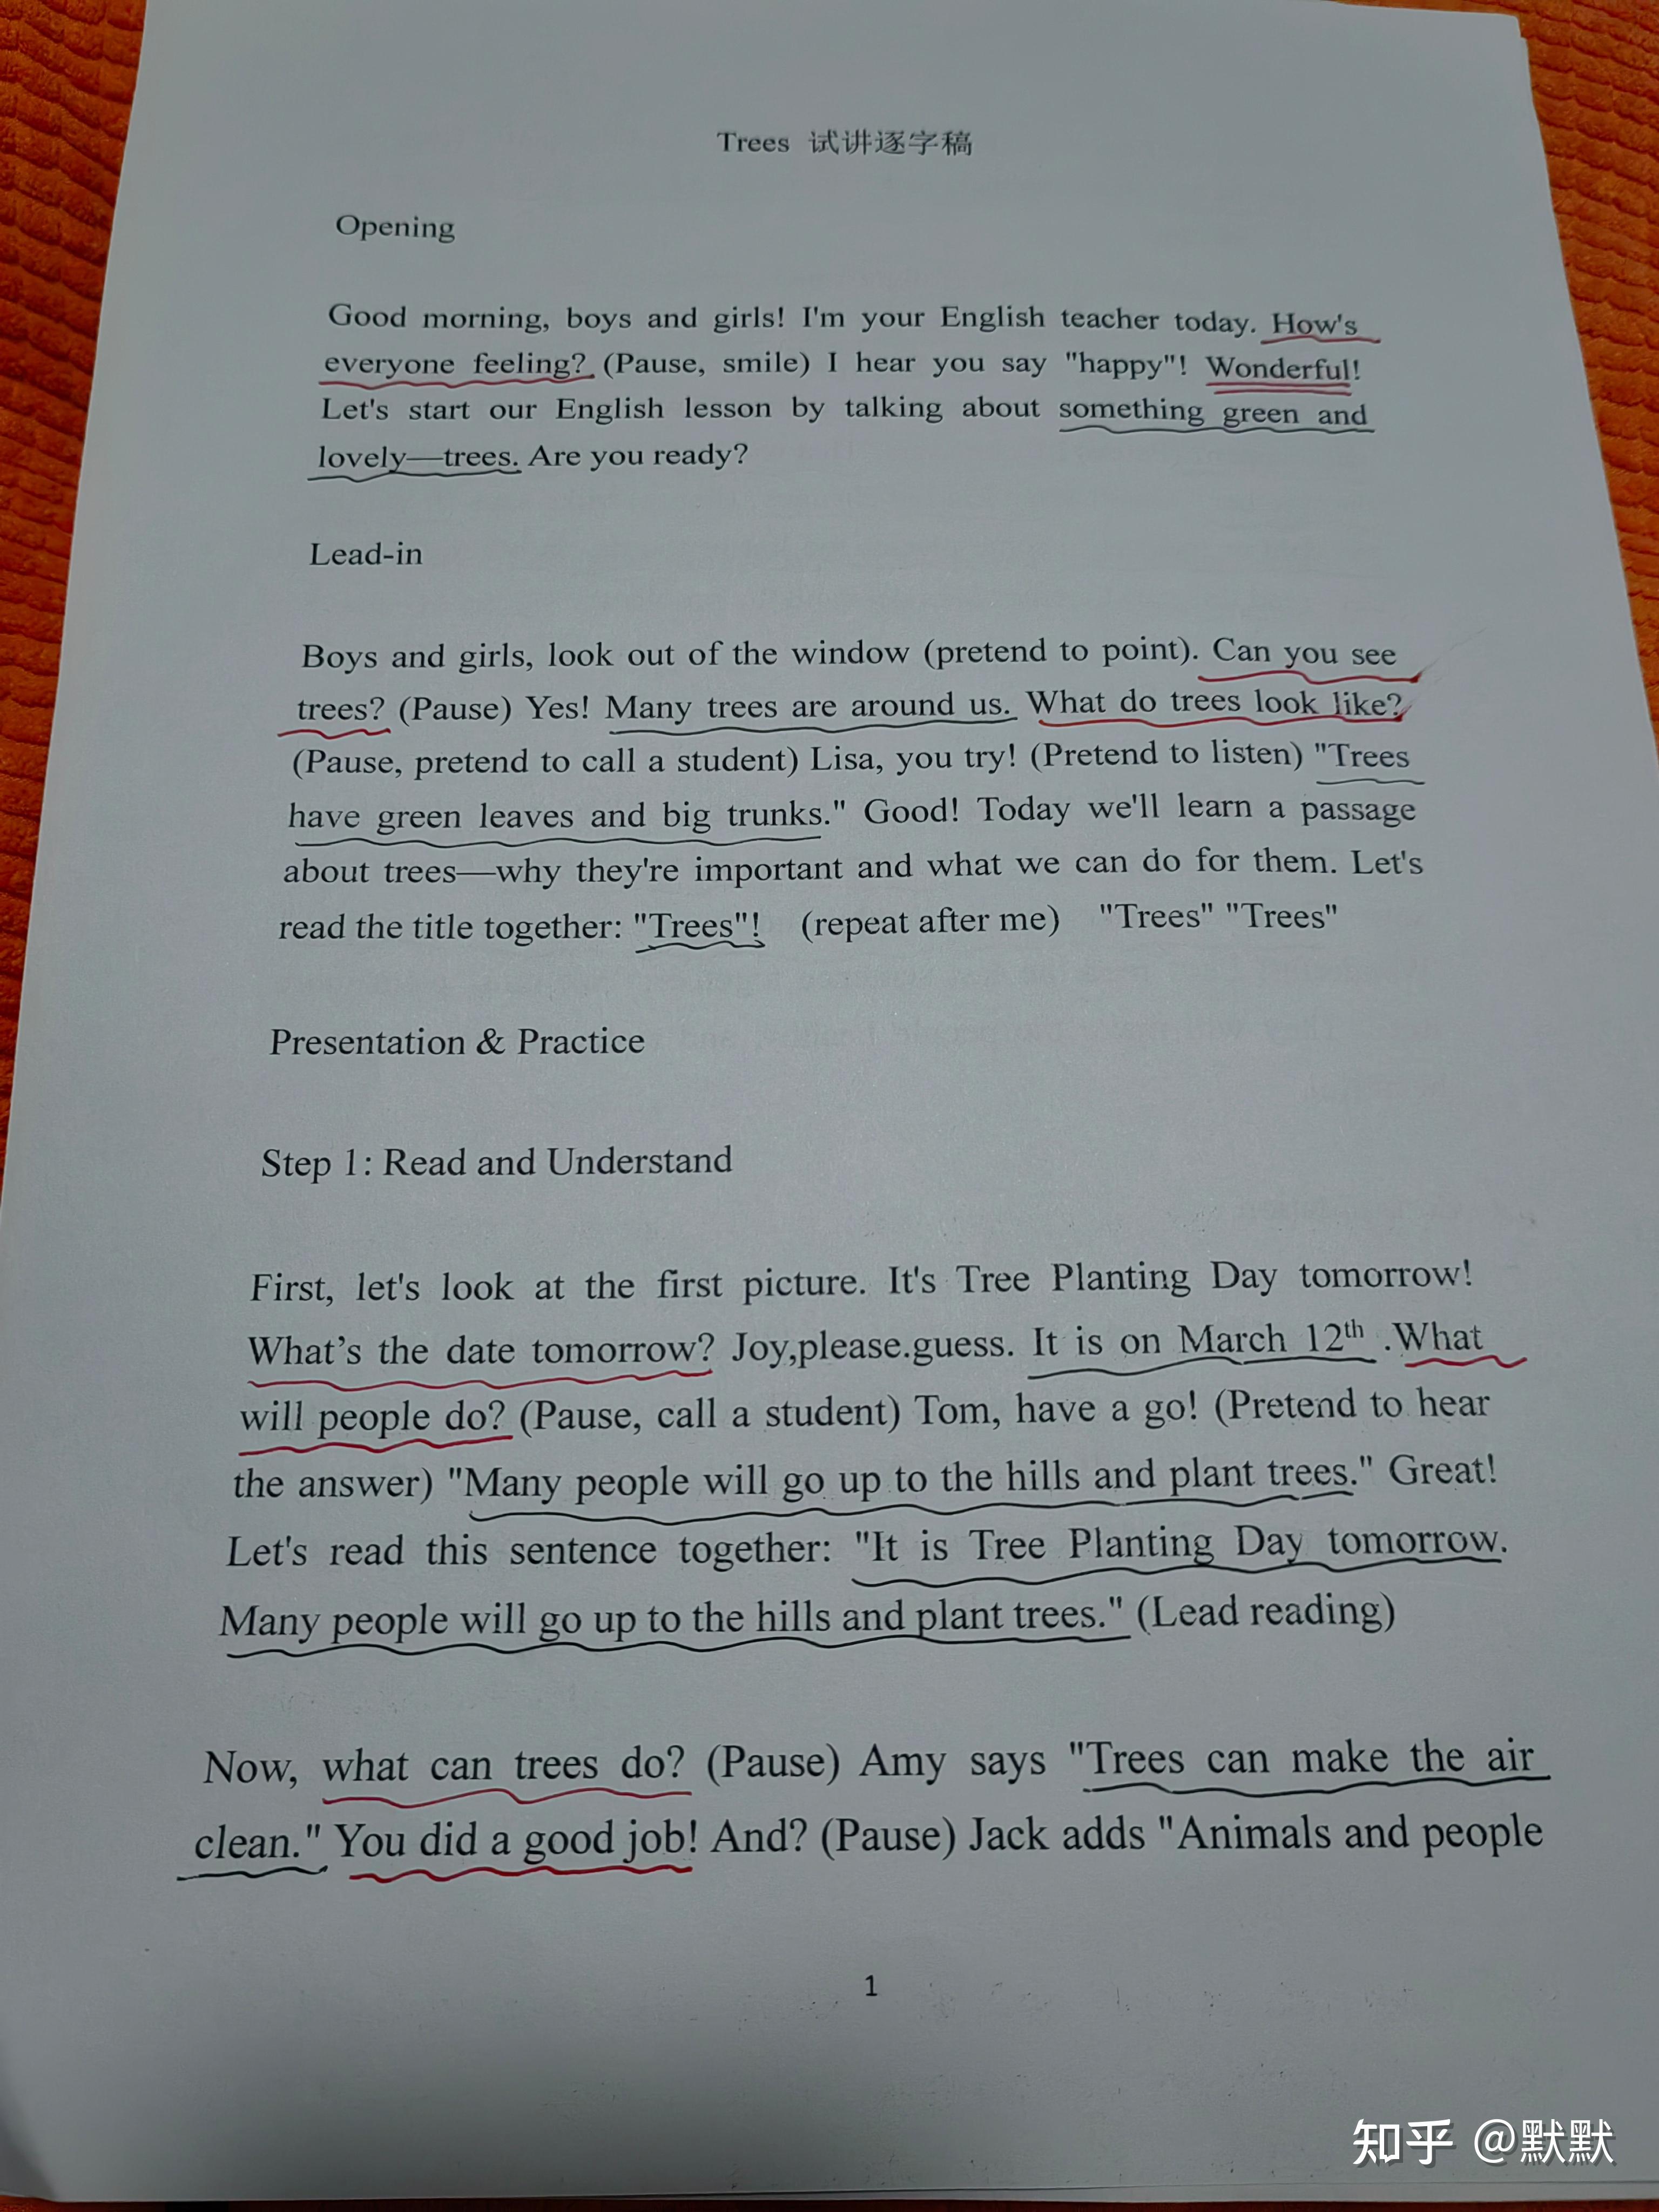 Trees 试讲逐字稿
Opening
Good morning, boys and girls! I'm your English teacher today. How's
everyone feeling? (Pause, smile) I hear you say "happy"! Wonderful!
Let's start our English lesson by talking about something green and
lovely—trees. Are you ready?
Lead-in
Boys and girls, look out of the window (pretend to point). Can you see
trees? (Pause) Yes! Many trees are around us. What do trees look like?
(Pause, pretend to call a student) Lisa, you try! (Pretend to listen) "Trees
have green leaves and big trunks." Good! Today we'll learn a passage
about trees—why they're important and what we can do for them. Let's
read the title together: "Trees"! (repeat after me) "Trees" "Trees"
Presentation & Practice
Step 1: Read and Understand
First, let's look at the first picture. It's Tree Planting Day tomorrow!
What’s the date tomorrow? Joy,please.guess. It is on March 12th .What
will people do? (Pause, call a student) Tom, have a go! (Pretend to hear
the answer) "Many people will go up to the hills and plant trees." Great!
Let's read this sentence together: "It is Tree Planting Day tomorrow.
Many people will go up to the hills and plant trees." (Lead reading)
Now, what can trees do? (Pause) Amy says "Trees can make the air
clean." You did a good job! And? (Pause) Jack adds "Animals and people
1
知乎 @默默